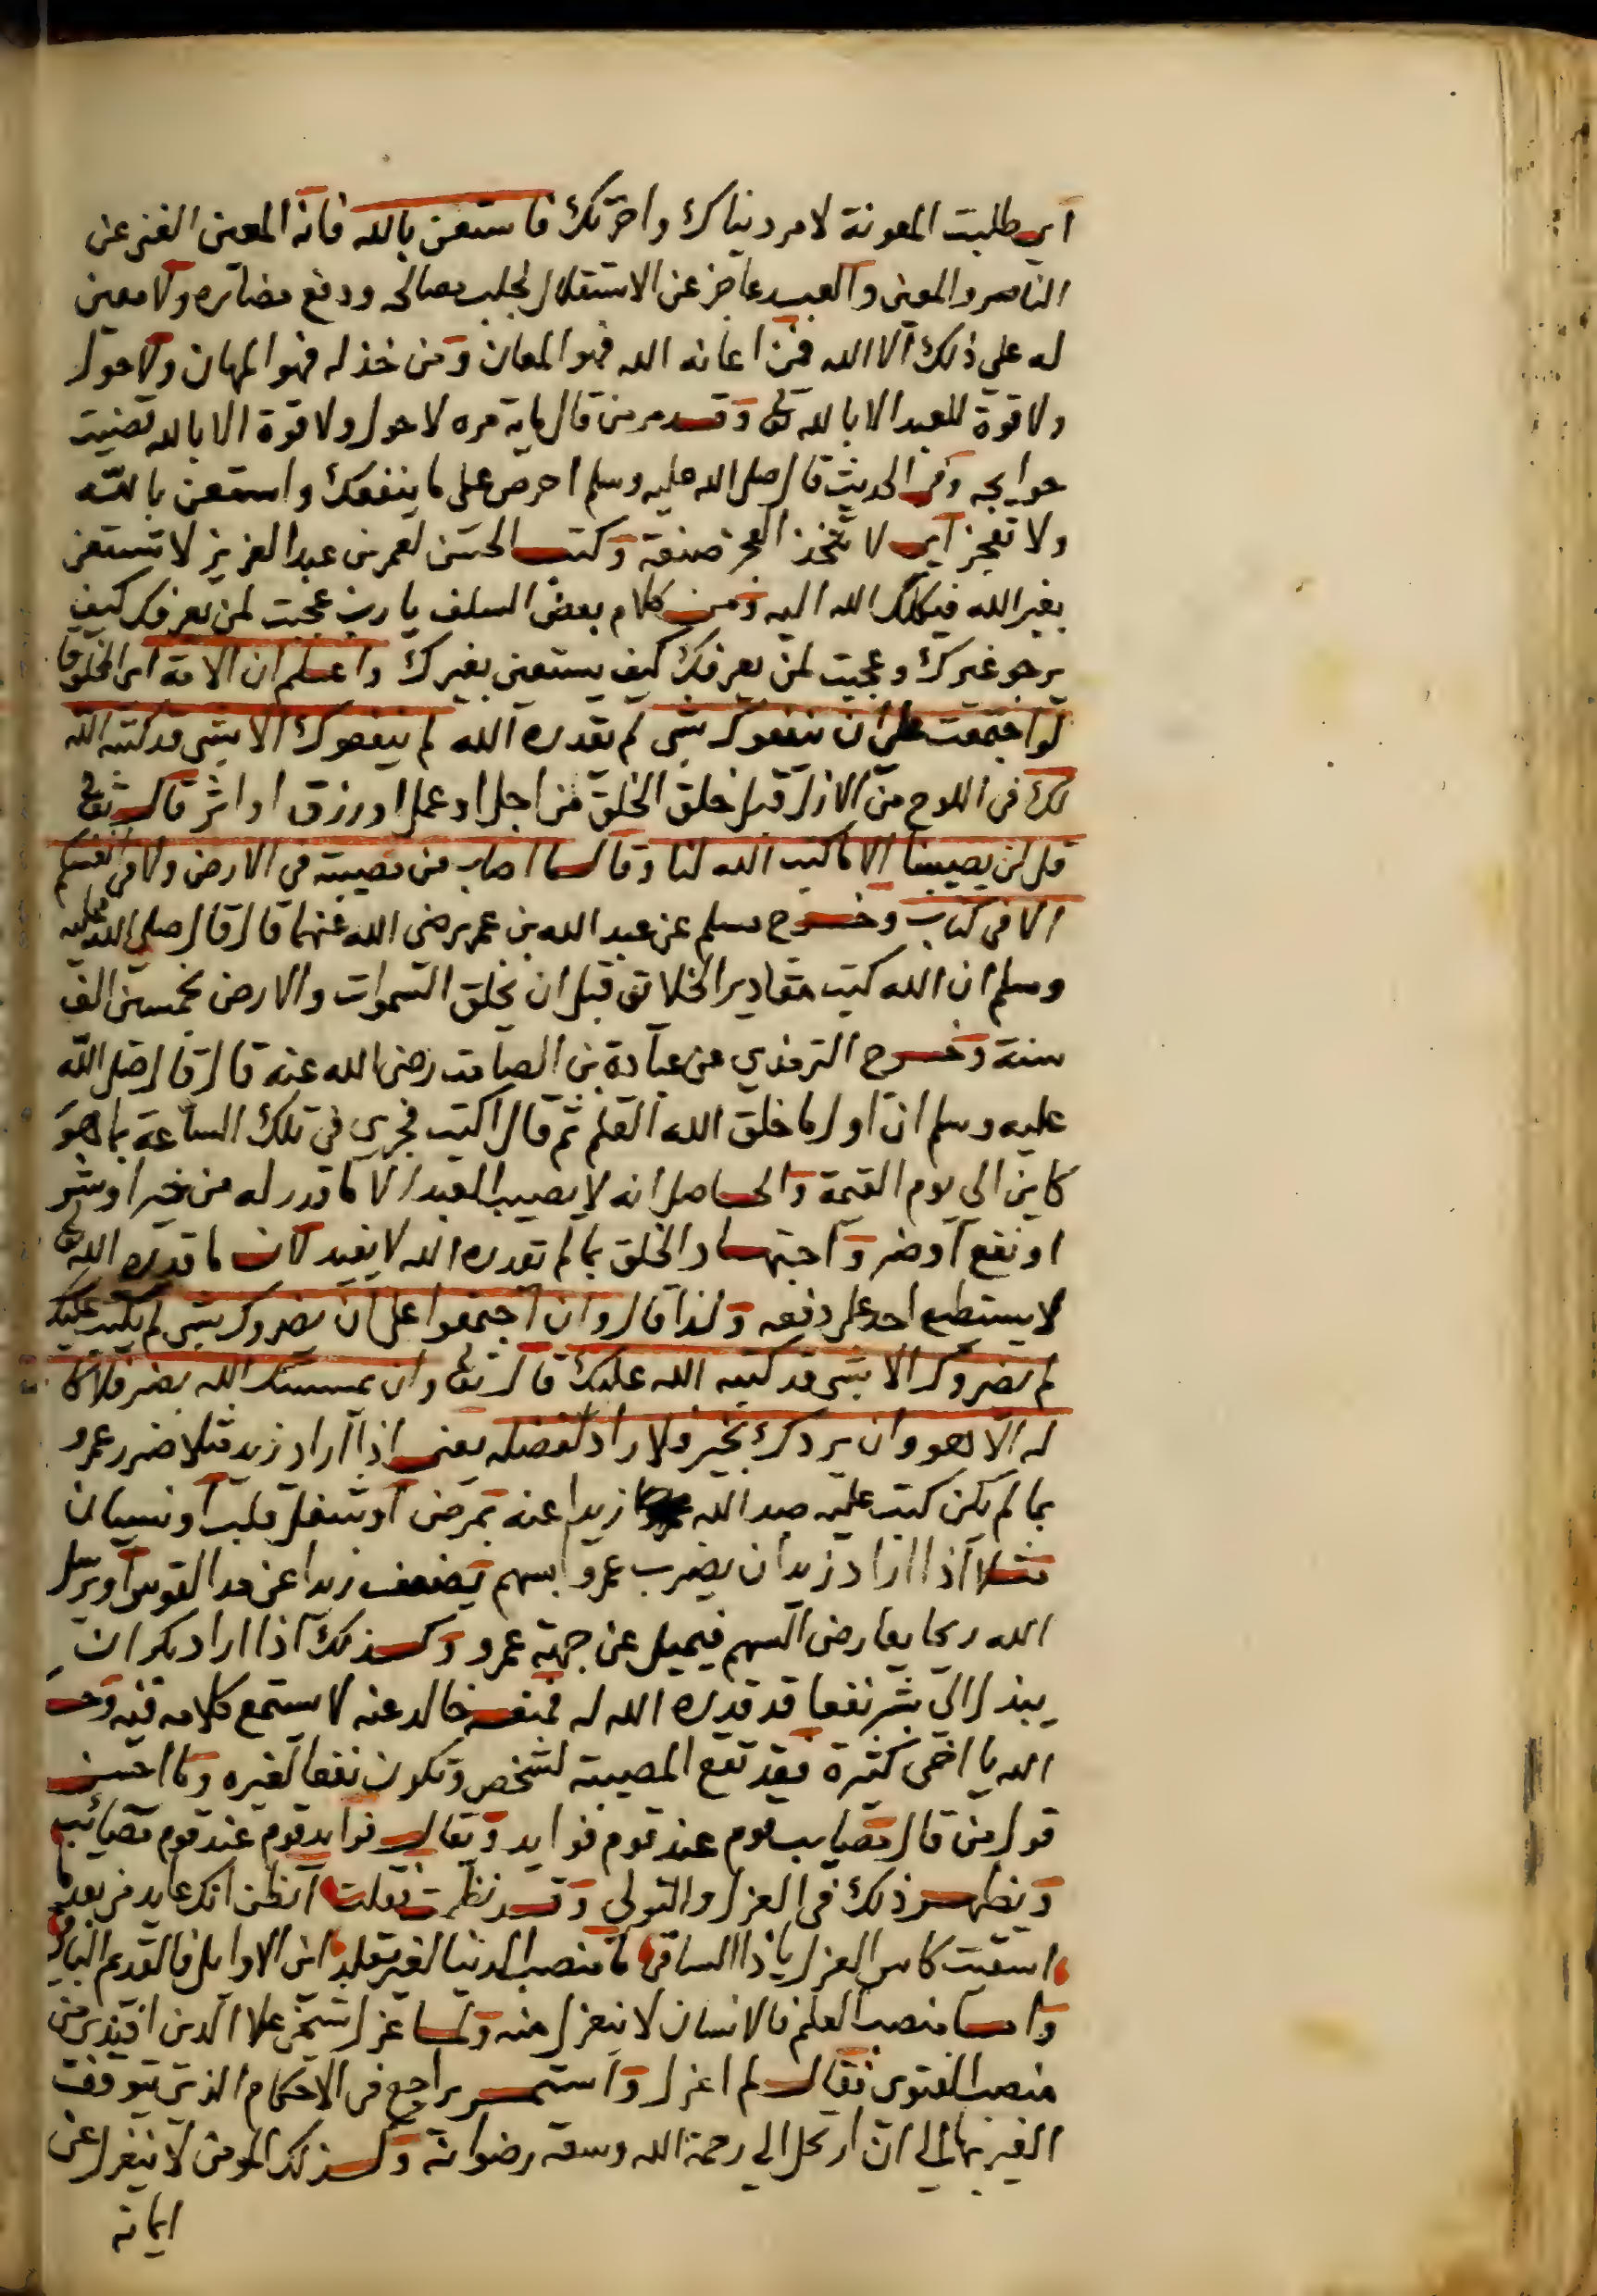 اي طلبت المعونة لامر دنياك واخرتك فاستعن بالله فانه المعين الغني عن
الناصر والمعين والعبد عاجز عن الاستقلال لجلب مصالحه ودفع مضاره ولا معين
له على ذلك الا الله فمن اعانه الله فهو المعان ومن خذله فهو المهان ولا حول
ولا قوة للعبد الا بالله تعالى وقد مر من قال ماية مره لا حول ولا قوة الا بالله قضيت
حوايجه وفي الحديث قال صلى الله عليه وسلم احرص على ما ينفعك واستعن بالله
ولا تعجز اي لا تتخذ العجز صنعة وكتب الحسن لعمر بن عبد العزيز لا تستعن
بغير الله فيكلك الله اليه ومن كلام بعض السلف يا رب عجبت لمن يعرفك كيف
يرجو غيرك وعجبت لمن يعرفك كيف يستعين بغيرك واعلم ان الامة اي الخلق
لو اجتمعت على ان ينفعوك بشي لم يقدره الله لم ينفعوك الا بشي قد كتبه الله
لك في اللوح من الازل قبل خلق الخلق من اجل او عمل او رزق او اثر قال تعالى
قل لن يصيبنا الا ما كتب الله لنا وقال ما اصاب من مصيبة في الارض ولا في انفسكم
الا في كتاب وخرج مسلم عن عبد الله بن عمر رضي الله عنهما قال قال صلى الله عليه
وسلم ان الله كتب مقادير الخلائق قبل ان يخلق السموات والارض بخمسين الف
سنة وخرج الترمذي عن عبادة بن الصامت رضي الله عنه قال قال صلى الله
عليه وسلم ان اول ما خلق الله القلم ثم قال اكتب فجرى في تلك الساعة بما هو
كاين الى يوم القيمة والحاصل انه لا يصيب العبد الا ما قدر له من خير او شر
او نفع او ضر واجتهاد الخلق بما لم يقدره الله لا يفيد لان ما قدره الله تعالى
لا يستطيع احد على دفعه ولذا قال وان اجتمعوا على ان يضروك بشي لم يكتب عليك
لم يضروك الا بشي قد كتبه الله عليك قال تعالى وان يمسسك الله بضر فلا كا
له الا هو وان يردك بخير فلا راد لفضله يعني اذا اراد زيد مثلا ضرر عمرو
بما لم يكن كتب عليه صد الله زيدا عنه بمرض او شغل قلب او نسيان
مثلا اذا اراد زيد ان يضرب عمروا بسهم يضعف زيدا عن مد القوس او يرسل
الله ريحا يعارض السهم فيميل عن جهة عمرو وكذلك اذا اراد بكر ان
يبذل الى بشر نفعا قد قدره الله له فمنعه خالد عنه لا يستمع كلامه فيه
الله يا اخي كثيرة فقد تقع المصيبة لشخص وتكون نفعا لغيره وما احسن
قول من قال مصايب قوم عند قوم فوايد ويقال فوايد قوم عند قوم مصائب
ويظهر ذلك في العزل والتولي وقد نظمت فقلت اتظن انك عايد من بعد ما
اسقيت كاس العزل يا ذا الساقي ما منصب الدنيا لغير تقلد اين الاوايل فالقديم الباقي
واما منصب العلم فالانسان لا ينعزل منه ولما عزل شيخي علا الدين افندي من
منصب الفتوى فقال لم اعزل واستمر يراجع في الاحكام الذي يتوقف
الغير بها الى ان ارتحل الى رحمة الله وسعة رضوانه وكذلك المومن لا ينعزل عن
ايمانه